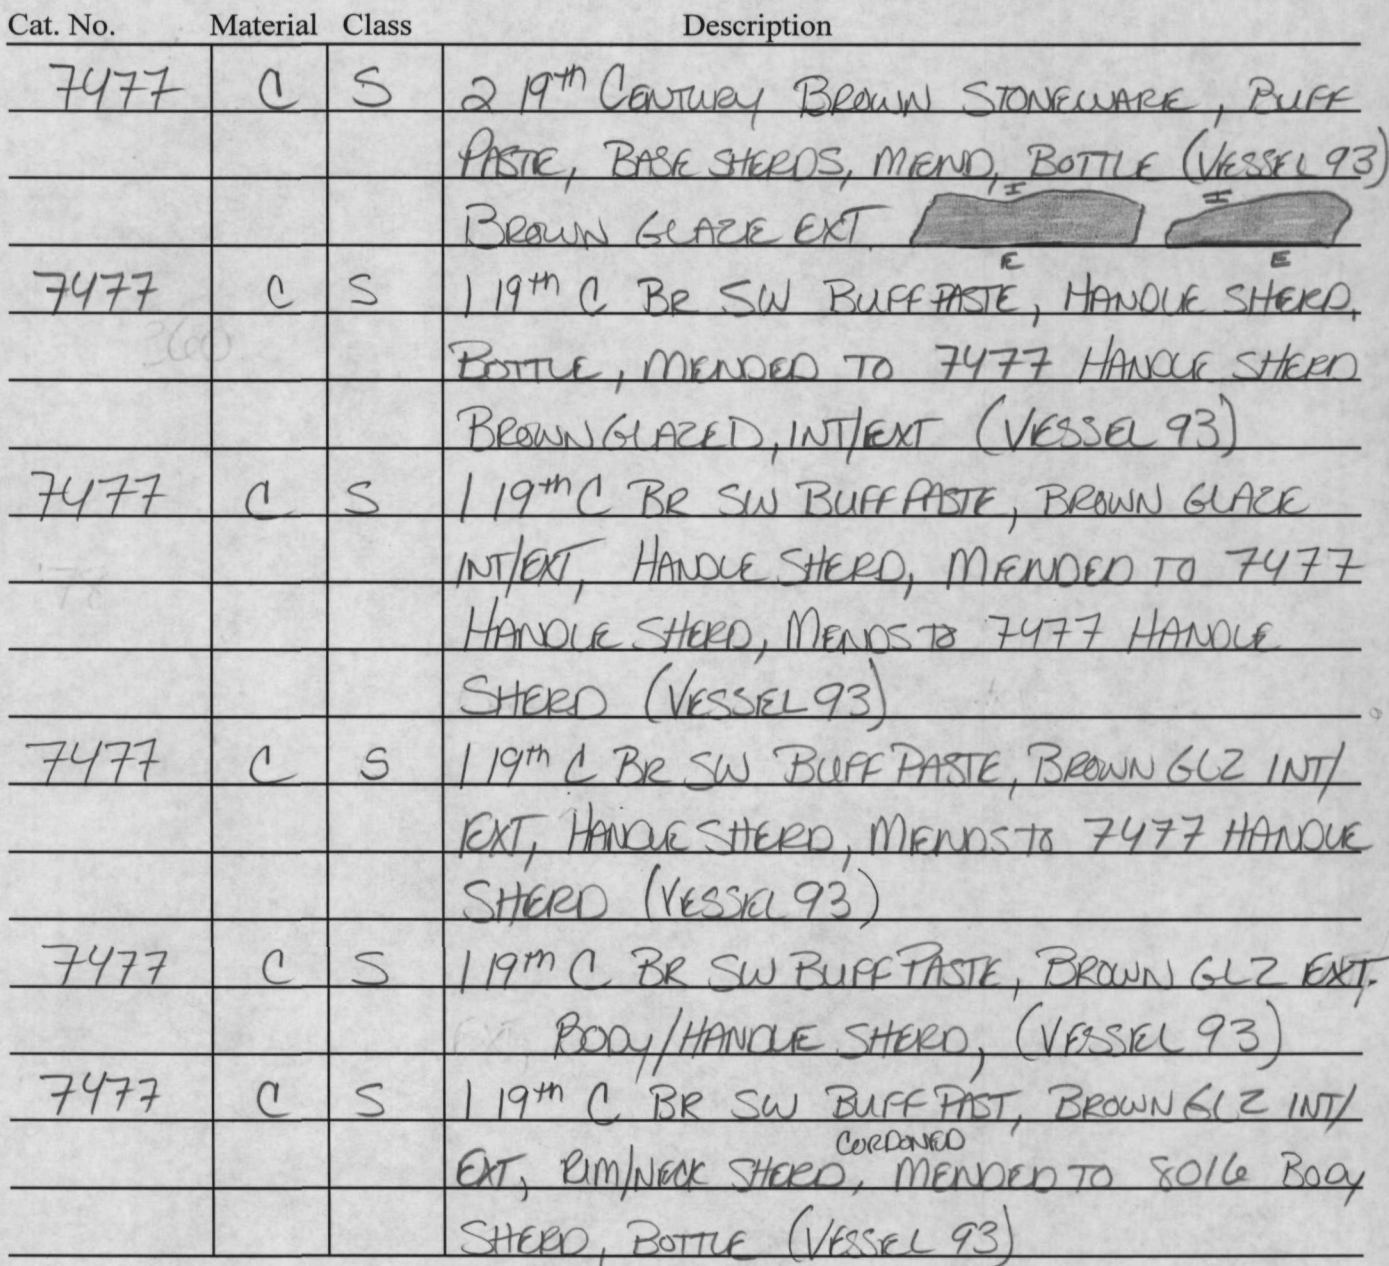 Cat. No. Material Class Description
7477 C S 2 19th CENTURY BROWN STONEWARE, BUFF
PASTE, BASE SHERDS, MEND, BOTTLE (VESSEL 93)
I I
BROWN GLAZE EXT.
E E
7477 C S 1 19th C BR SW BUFF PASTE, HANDLE SHERD,
3600 BOTTLE, MENDED TO 7477 HANDLE SHERD
BROWN GLAZED, INT/EXT (VESSEL 93)
7477 C S 1 19th C BR SW BUFF PASTE, BROWN GLAZE
INT/EXT, HANDLE SHERD, MENDED TO 7477
HANDLE SHERD, MENDS TO 7477 HANDLE
SHERD (VESSEL 93)
7477 C S 1 19th C BR SW BUFF PASTE, BROWN GLZ INT/
EXT, HANDLE SHERD, MENDS TO 7477 HANDLE
SHERD (VESSEL 93)
7477 C S 1 19th C BR SW BUFF PASTE, BROWN GLZ EXT.
BODY/HANDLE SHERD, (VESSEL 93)
7477 C S 1 19th C BR SW BUFF PAST, BROWN GLZ INT/
CORDONED
EXT, RIM/NECK SHERD, MENDED TO 8016 BODY
SHERD, BOTTLE (VESSEL 93)